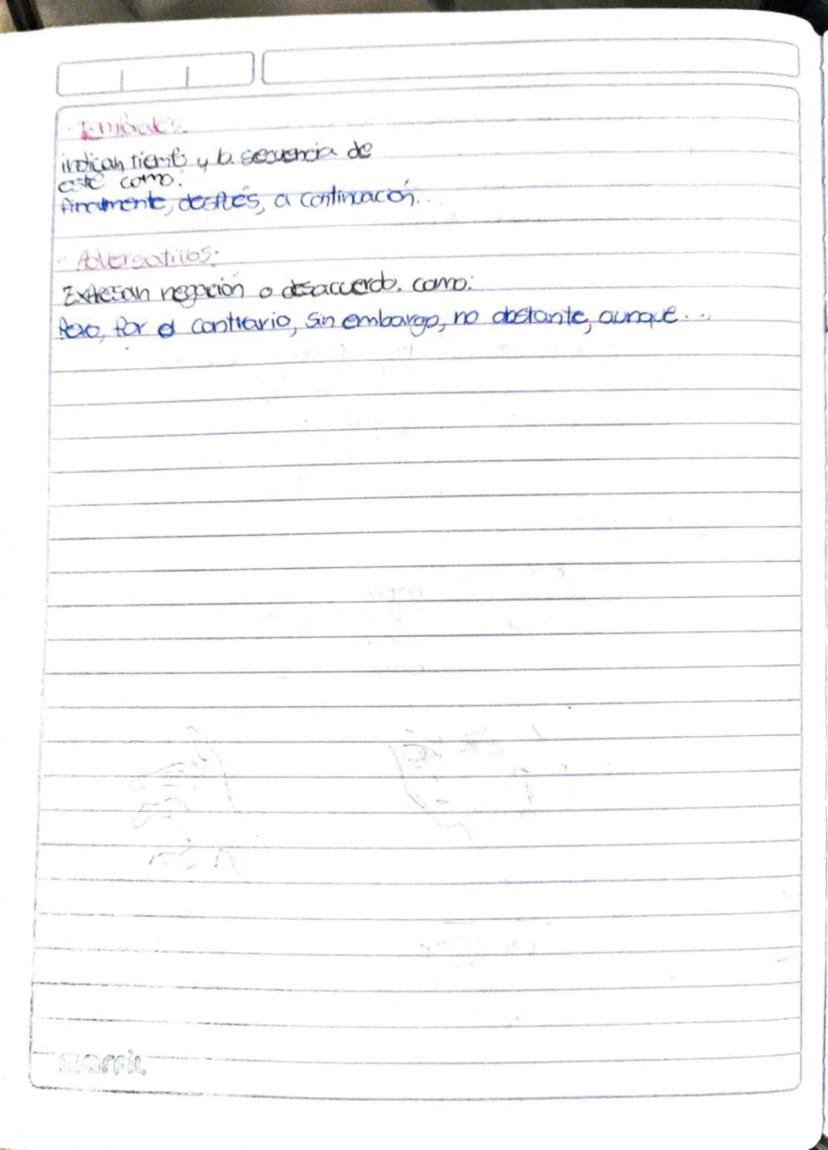 · Temporales:
indican tiempo y la secuencia de
este como:
finalmente, después, a continuación...
· Adversativos:
Expresan negación o desacuerdo. como:
Pero, Por el contrario, sin embargo, no obstante, aunque...